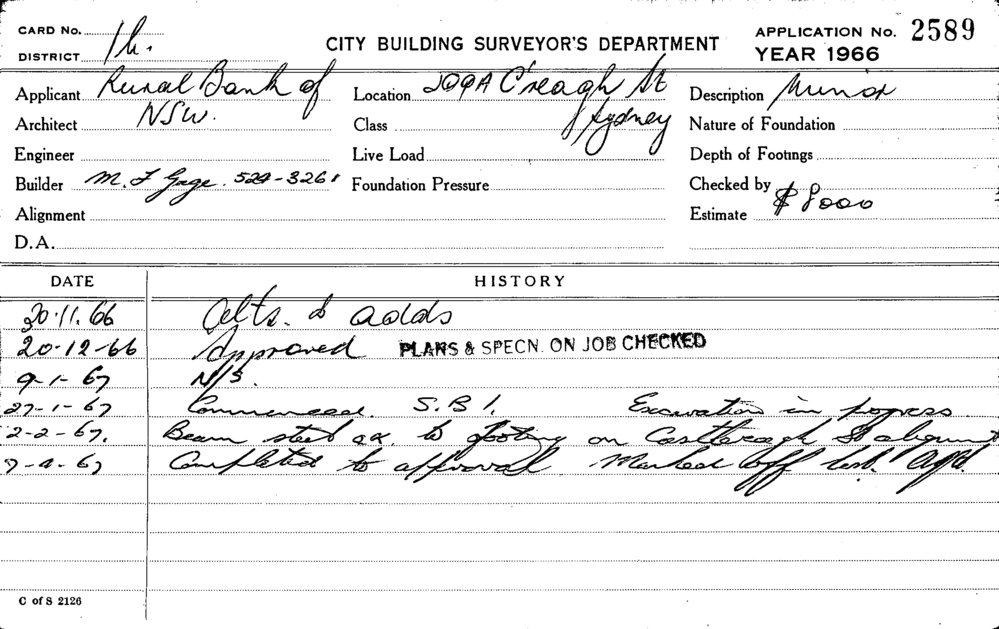 CARD No.
DISTRICT 1h.
CITY BUILDING SURVEYOR'S DEPARTMENT
APPLICATION No. 2589
YEAR 1966
Applicant Rural Bank of
Location 209A C'reagh St
Description Minor
Architect NSW.
Class Sydney
Nature of Foundation
Engineer
Live Load
Depth of Footings
Builder M. J Gage. 529-3261
Foundation Pressure
Checked by
Alignment
Estimate $8000
D.A.
DATE HISTORY
30.11.66 Alts. & adds
20-12-66 Approved PLANS & SPECN. ON JOB CHECKED
9-1-67 N/S.
27-1-67 Commenced. S.B1. Excavation in progress
2-2-67. Beam steel ok. to footing on Castlereagh St alignmt
7-4-67 Completed to approval Marked off
C of S 2126